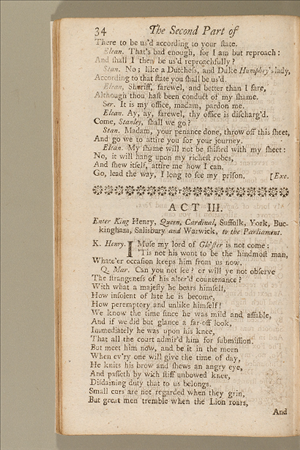 34 The Second Part of
There to be us'd according to your state.
Elean. That's bad enough, for I am but reproach:
And shall I then be us'd reproachfully?
Stan. No; like a Dutchess, and Duke Humphry's lady,
According to that state you shall be us'd.
Elean. Sheriff, farewel, and better than I fare,
Although thou hast been conduct of my shame.
Ser. It is my office, madam, pardon me.
Elean. Ay, ay, farewel, thy office is discharg'd.
Come, Stanley, shall we go?
Stan. Madam, your penance done, throw off this sheet,
And go we to attire you for your journey.
Elean. My shame will not be shifted with my sheet:
No, it will hang upon my richest robes,
And shew itself, attire me how I can.
Go, lead the way, I long to see my prison. [Exe.
ACT III.
Enter King Henry, Queen, Cardinal, Suffolk, York, Buc-
kingham, Salisbury and Warwick, to the Parliament.
K. Henry. I Muse my lord of Glo'ster is not come:
'Tis not his wont to be the hindmost man,
Whate'er occasion keeps him from us now.
Q. Mar. Can you not see? or will ye not observe
The strangeness of his alter'd countenance?
With what a majesty he bears himself,
How insolent of late he is become,
How peremptory and unlike himself?
We know the time since he was mild and affable,
And if we did but glance a far-off look,
Immediately he was upon his knee,
That all the court admir'd him for submission.
But meet him now, and be it in the morn
When ev'ry one will give the time of day,
He knits his brow and shews an angry eye,
And passeth by with stiff unbowed knee,
Disdaining duty that to us belongs.
Small curs are not regarded when they grin,
But great men tremble when the Lion roars,
And